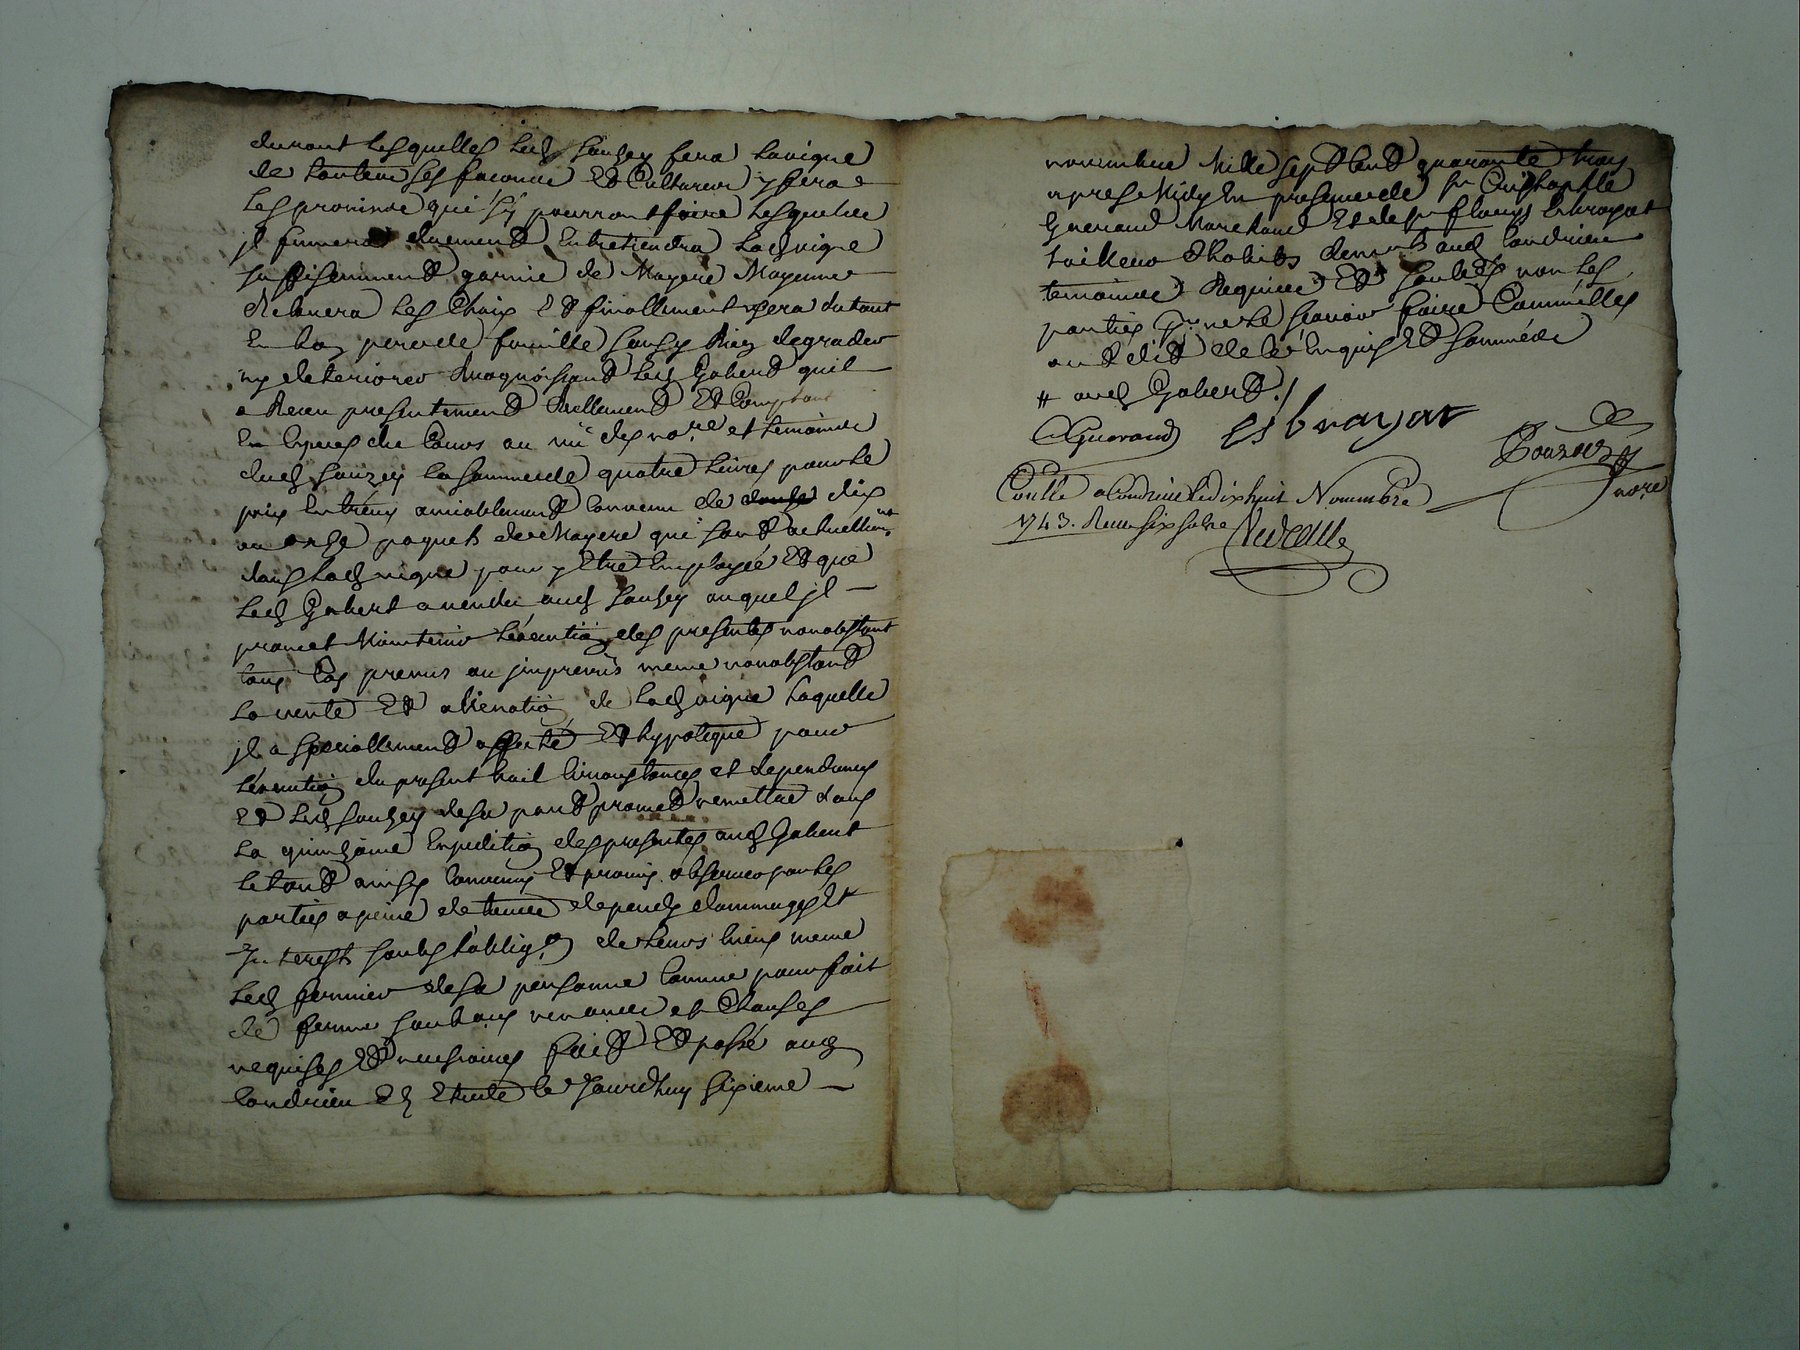 durant lesquelles led Sauzey fera lavigne
de toutes ses facons Et Cultures y fera
les provins qui sy pourront faire lesquelles
jl fumera duement Entretiendra lad vigne
suffisamment garnie de Mayere Moyenne
Relevera les Chaix Et finallement usera dutout
En bon pere de famille sans y Rien degrader
ny deteriorer Recognoissant led Gabert quil
a Receu presentement Reellement Et Comptant
En Especes du Cours au vu des no.re et temoins
dud Sauzey la somme de quatre livres pour le
prix Entreux amiablement convenu de douze dix
ou onze paquets de Mayere qui sont actuellemnt
dans lad vigne pour y Etre Employée Et que
led Gabert a vendu aud Sauzey auquel jl
promet Maintenir lexecution des presentes nonobstant
tous Cas preveus ou jmpreveus meme nonobstant
la vente Et alienation de lad vigne laquelle
jl a speciallement affecté Et hypoteque pour
lexecution du present bail Circonstances et dependances
Et led Sauzey desa part promet remettre dans
la quinzaine Expedition des presentes aud Gabert
le tout ainsy convenu Et promis observer par les
parties a peine de tous depends dommages Et
Interests soubs lobligon de leurs biens meme
led fermier de sa personne comme pour fait
de ferme soub aux renonces et Clauses
requises Et necessaires fait Et passé aud
Condrieu En Etude le Jourdhuy sixieme
novembre Mille sept Cent quarante trois
apres Midy En presence de sr Christophle
Guerand Marchand Et de sr
tailleur dhabits demts aud Condrieu
temoins Requis Et Soubsnes non les
parties pr ne le scavoir faire Comme elles
ont dit de ce Enquis Et sommées
# aud Gabert ./.
CGuerand Esbrayat
Nore
Conlle a Condrieu le dix huit Novembre
1743. Receu six sols